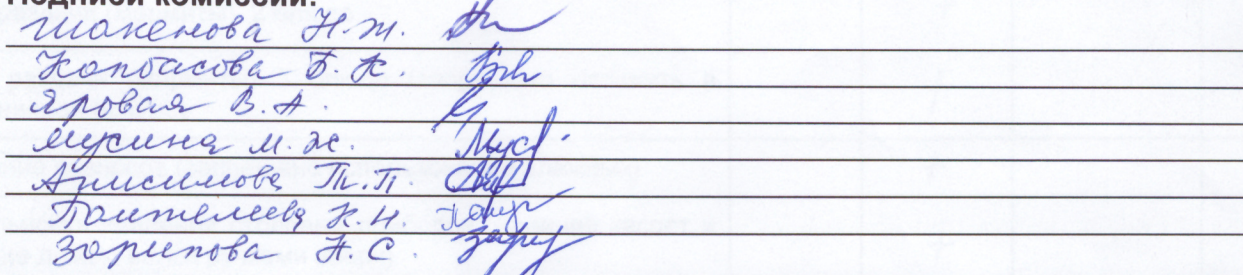 Подписи комиссии:
Шакенова Н.Ж.
Копбасова Б.К.
Яровая В.А.
Мусина М.Ж.
Анисимова Т.П.
Пантелеева К.Н.
Зарипова Н.С.